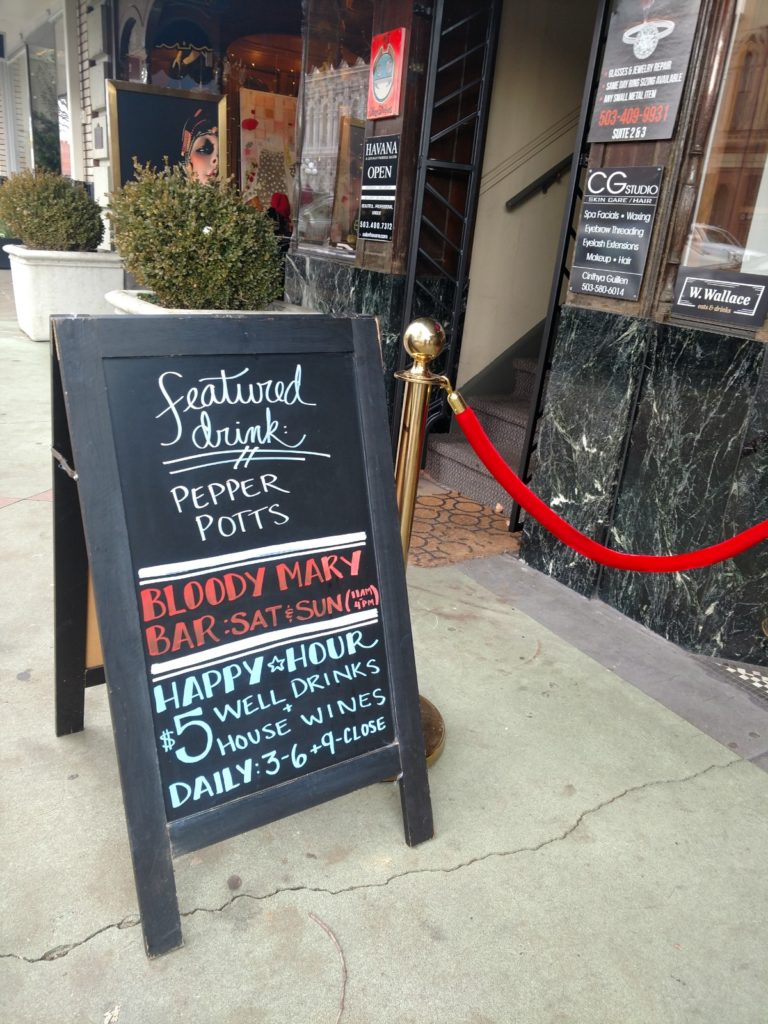 featured
drink:
PEPPER
POTTS
BLOODY MARY
BAR: SAT & SUN (11AM
4PM)
HAPPY ☆ HOUR
$5 WELL DRINKS
+
HOUSE WINES
DAILY: 3-6 + 9-CLOSE
HAVANA
OPEN
503.409.7312
GLASSES & JEWELRY REPAIR
• SAME DAY RING SIZING AVAILABLE
• ANY SMALL METAL ITEM
503-409-9931
SUITE 2 & 3
CG STUDIO
SKIN CARE/HAIR
Spa Facials • Waxing
Eyebrow Threading
Eyelash Extensions
Makeup • Hair
Cinthya Guillen
503-580-6014
W. Wallace
eats & drinks